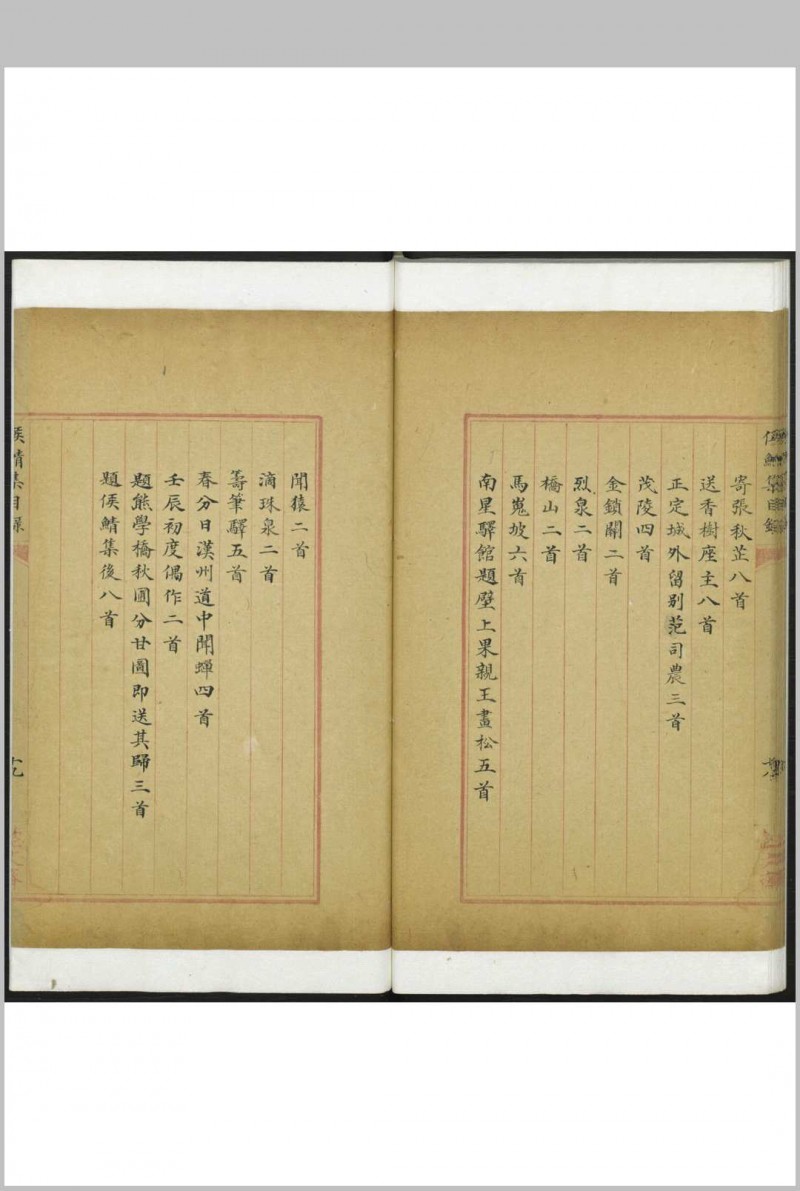 寄張秋芷八首
送香樹座主八首
正定城外留别范司農三首
茂陵四首
金鎖關二首
烈泉二首
橋山二首
馬嵬坡六首
南星驛館題壁上果親王畫松五首
聞猿二首
滴珠泉二首
籌筆驛五首
春分日漢州道中聞蟬四首
壬辰初度偶作二首
題熊學橋秋圃分甘圖即送其歸三首
題侯鯖集後八首
侯鯖集目錄
十九